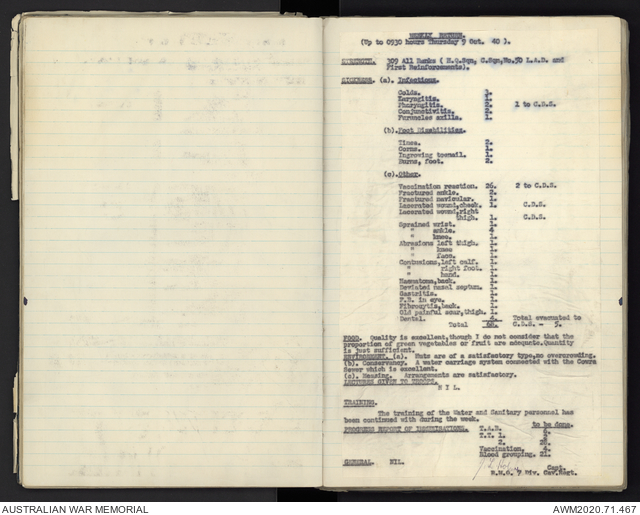 WEEKLY REPORT.
(Up to 0930 hours Thursday 9 Oct. 40 ).
STRENGTH. 309 All Ranks ( H.Q.Sqn, C.Sqn,No.50 L.A.D. and
First Reinforcements).
SICKNESS. (a). Infectious.
Colds.
Laryngitis.
Pharyngitis. 1 to C.D.S.
Conjunctivitis.
Furuncles axilla.
(b). Foot Disabilities.
Tinea.
Corns.
Ingrowing toenail.
Burns, foot.
(c). Other.
Vaccination reaction. 26. 2 to C.D.S.
Fractured ankle.
Fractured navicular. 1.
Lacerated wound,cheek. 1. C.D.S.
Lacerated wound,right
thigh. 1. C.D.S.
Sprained wrist. 1.
" ankle. 4
" knee. 1.
Abrasions left thigh. 1.
" knee 1.
" face. 1.
Contusions,left calf. 1.
" right foot. 1.
" hand. 1.
Haematoma,back. 1.
Deviated nasal septum. 1.
Gastritis. 1.
F.B. in eye. 1.
Fibrocytis,back. 1.
Old painful scar,thigh. 1.
Dental. 4. Total evacuated to
Total 68. C.D.S. - 5.
FOOD. Quality is excellent,though I do not consider that the
proportion of green vegetables or fruit are adequate.Quantity
is just sufficient.
(a). Huts are of a satisfactory type,no overcrowding.
(b). Conservancy. A water carriage system connected with the Cowra
Sewer which is excellent.
(c). Messing. Arrangements are satisfactory.
LECTURES GIVEN TO TROOPS.
N I L.
TRAINING.
The training of the Water and Sanitary personnel has
been continued with during the week.
PROGRESS REPORT OF INOCULATIONS. to be done.
T.A.B.
T.T. 1.
2.
Vaccination. 4.
Blood grouping. 21.
GENERAL. NIL.
Capt.
R.M.O. 7 Div. Cav.Regt.
AUSTRALIAN WAR MEMORIAL
AWM2020.71.467